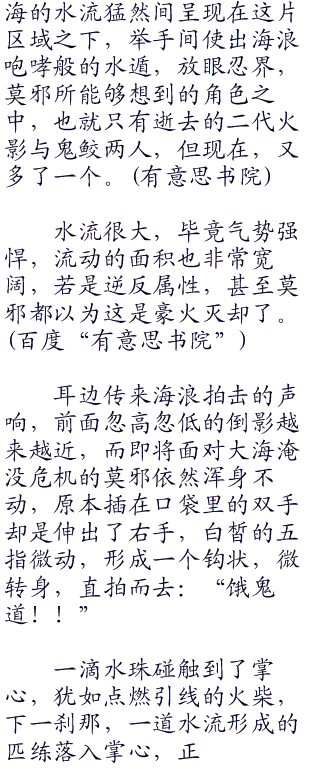 海的水流猛然间呈现在这片
区域之下，举手间使出海浪
咆哮般的水遁，放眼忍界，
莫邪所能够想到的角色之
中，也就只有逝去的二代火
影与鬼鲛两人，但现在，又
多了一个。(有意思书院)
水流很大，毕竟气势强
悍，流动的面积也非常宽
阔，若是逆反属性，甚至莫
邪都以为这是豪火灭却了。
(百度“有意思书院”)
耳边传来海浪拍击的声
响，前面忽高忽低的倒影越
来越近，而即将面对大海淹
没危机的莫邪依然浑身不
动，原本插在口袋里的双手
却是伸出了右手，白皙的五
指微动，形成一个钩状，微
转身，直拍而去：“饿鬼
道！！”
一滴水珠碰触到了掌
心，犹如点燃引线的火柴，
下一刹那，一道水流形成的
匹练落入掌心，正